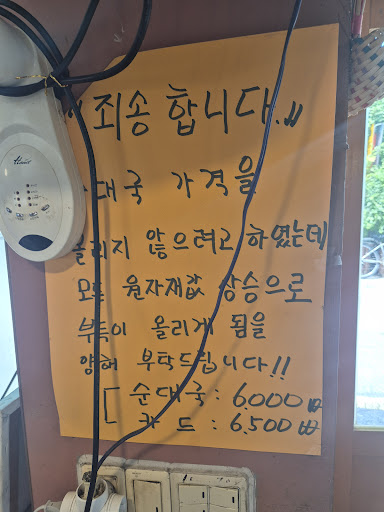 죄송합니다.!!
대국 가격을
올리지 않으려고 하였는데
모든 원자재값 상승으로
부득이 올리게 됨을
양해 부탁드립니다!!
[ 순대국 : 6,000₩
카드 : 6,500₩